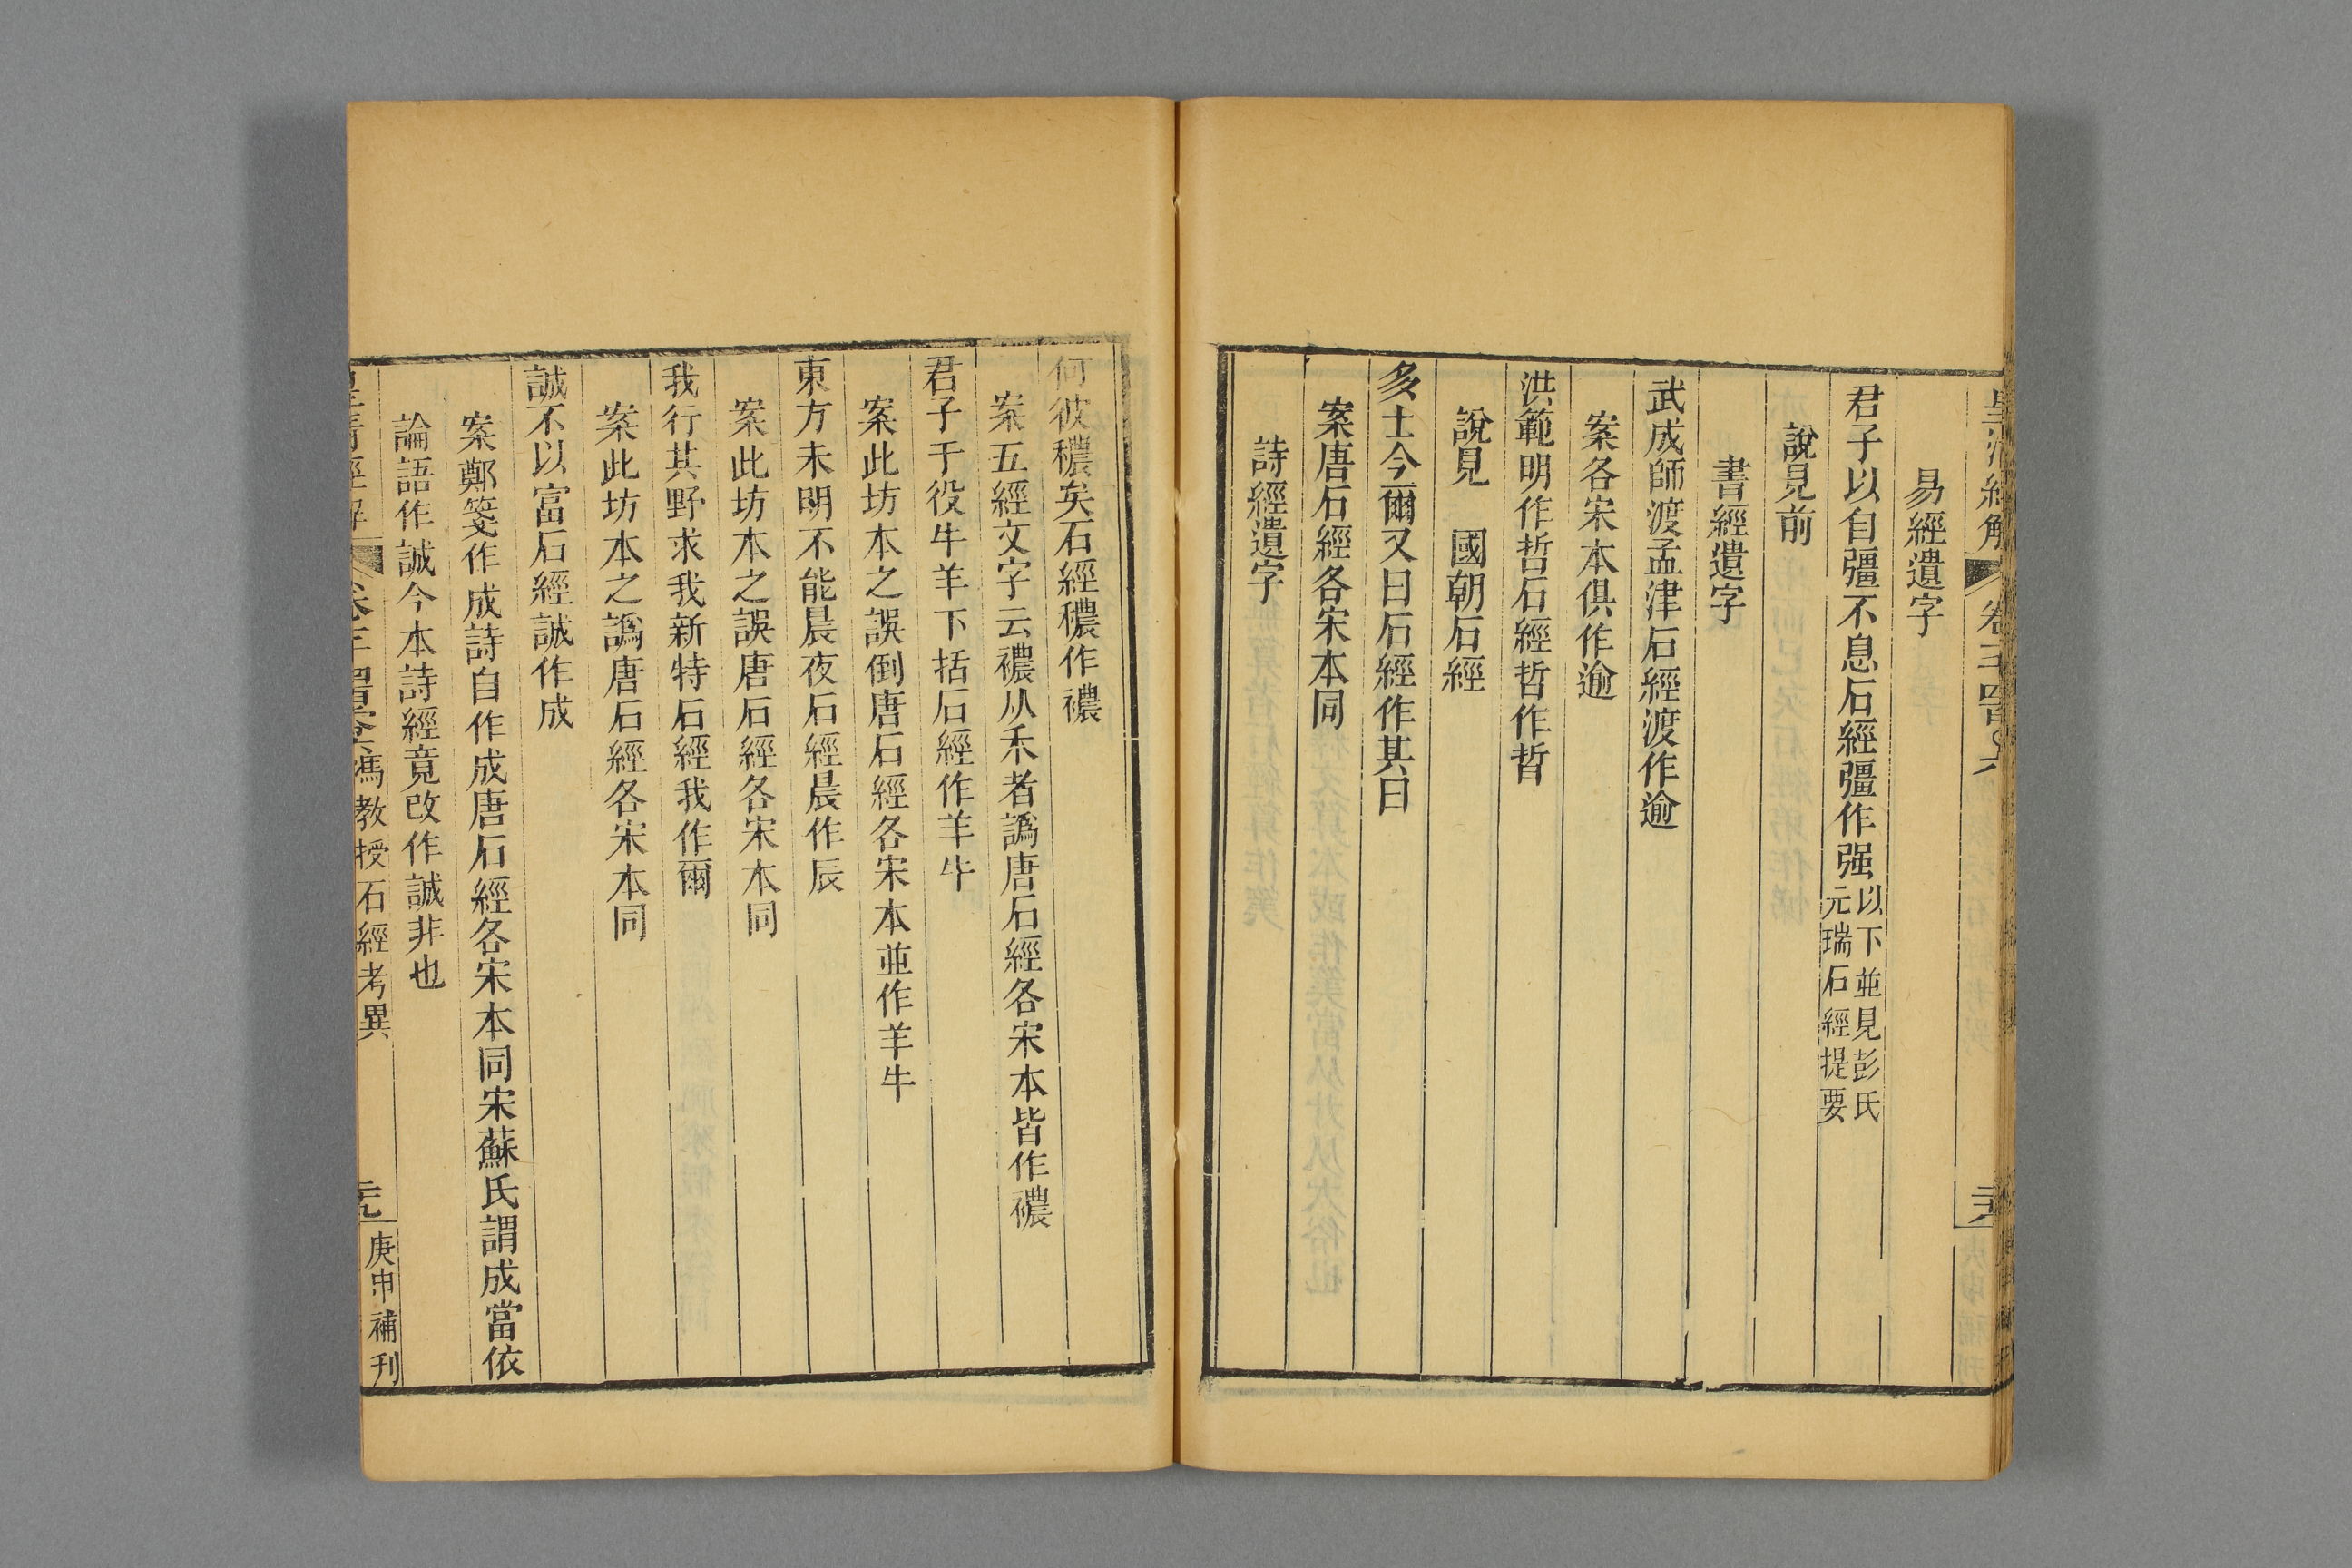 皇清經解 卷千四百
易經遺字
君子以自彊不息石經彊作强以下並見彭氏元瑞石經提要
說見前
書經遺字
武成師渡孟津石經渡作逾
案各宋本俱作逾
洪範明作哲石經哲作晢
說見 國朝石經
多士今爾又曰石經作其曰
案唐石經各宋本同
詩經遺字
何彼穠矣石經穠作襛
案五經文字云襛从禾者譌唐石經各宋本皆作襛
君子于役牛羊下括石經作羊牛
案此坊本之誤倒唐石經各宋本並作羊牛
東方未明不能晨夜石經晨作辰
案此坊本之誤唐石經各宋本同
我行其野求我新特石經我作爾
案此坊本之譌唐石經各宋本同
誠不以富石經誠作成
案鄭箋作成詩自作成唐石經各宋本同宋蘇氏謂成當依
論語作誠今本詩經竟改作誠非也
皇清經解 馮教授石經考異 庚申補刊